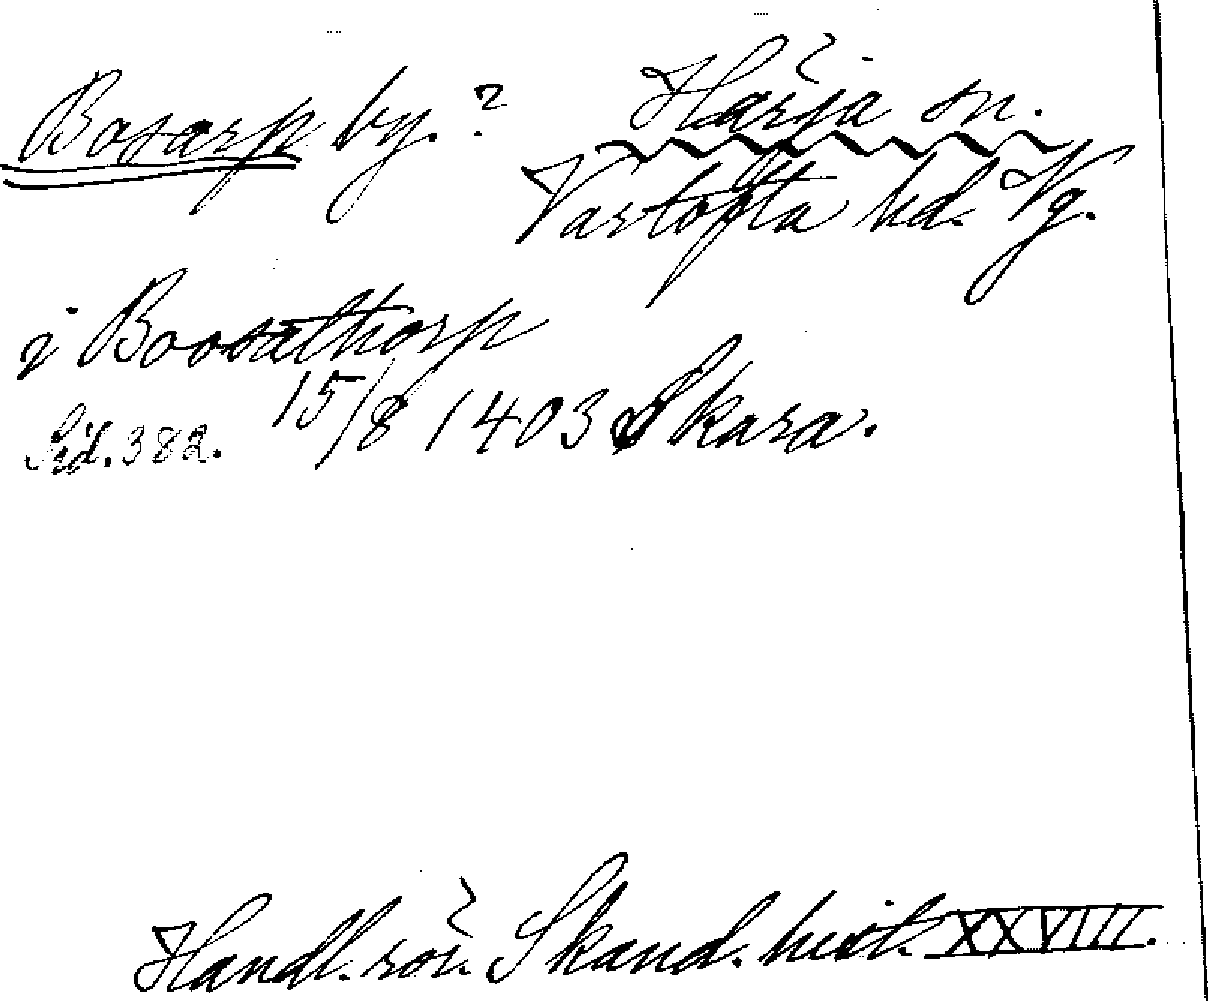 Bosarp by.? Härja sn.
Vartofta hd. Vg.
j Boosathorp
15/8 1403 Skara.
Sid. 382.
Handl. rör. Skand. hist. XXVIII.